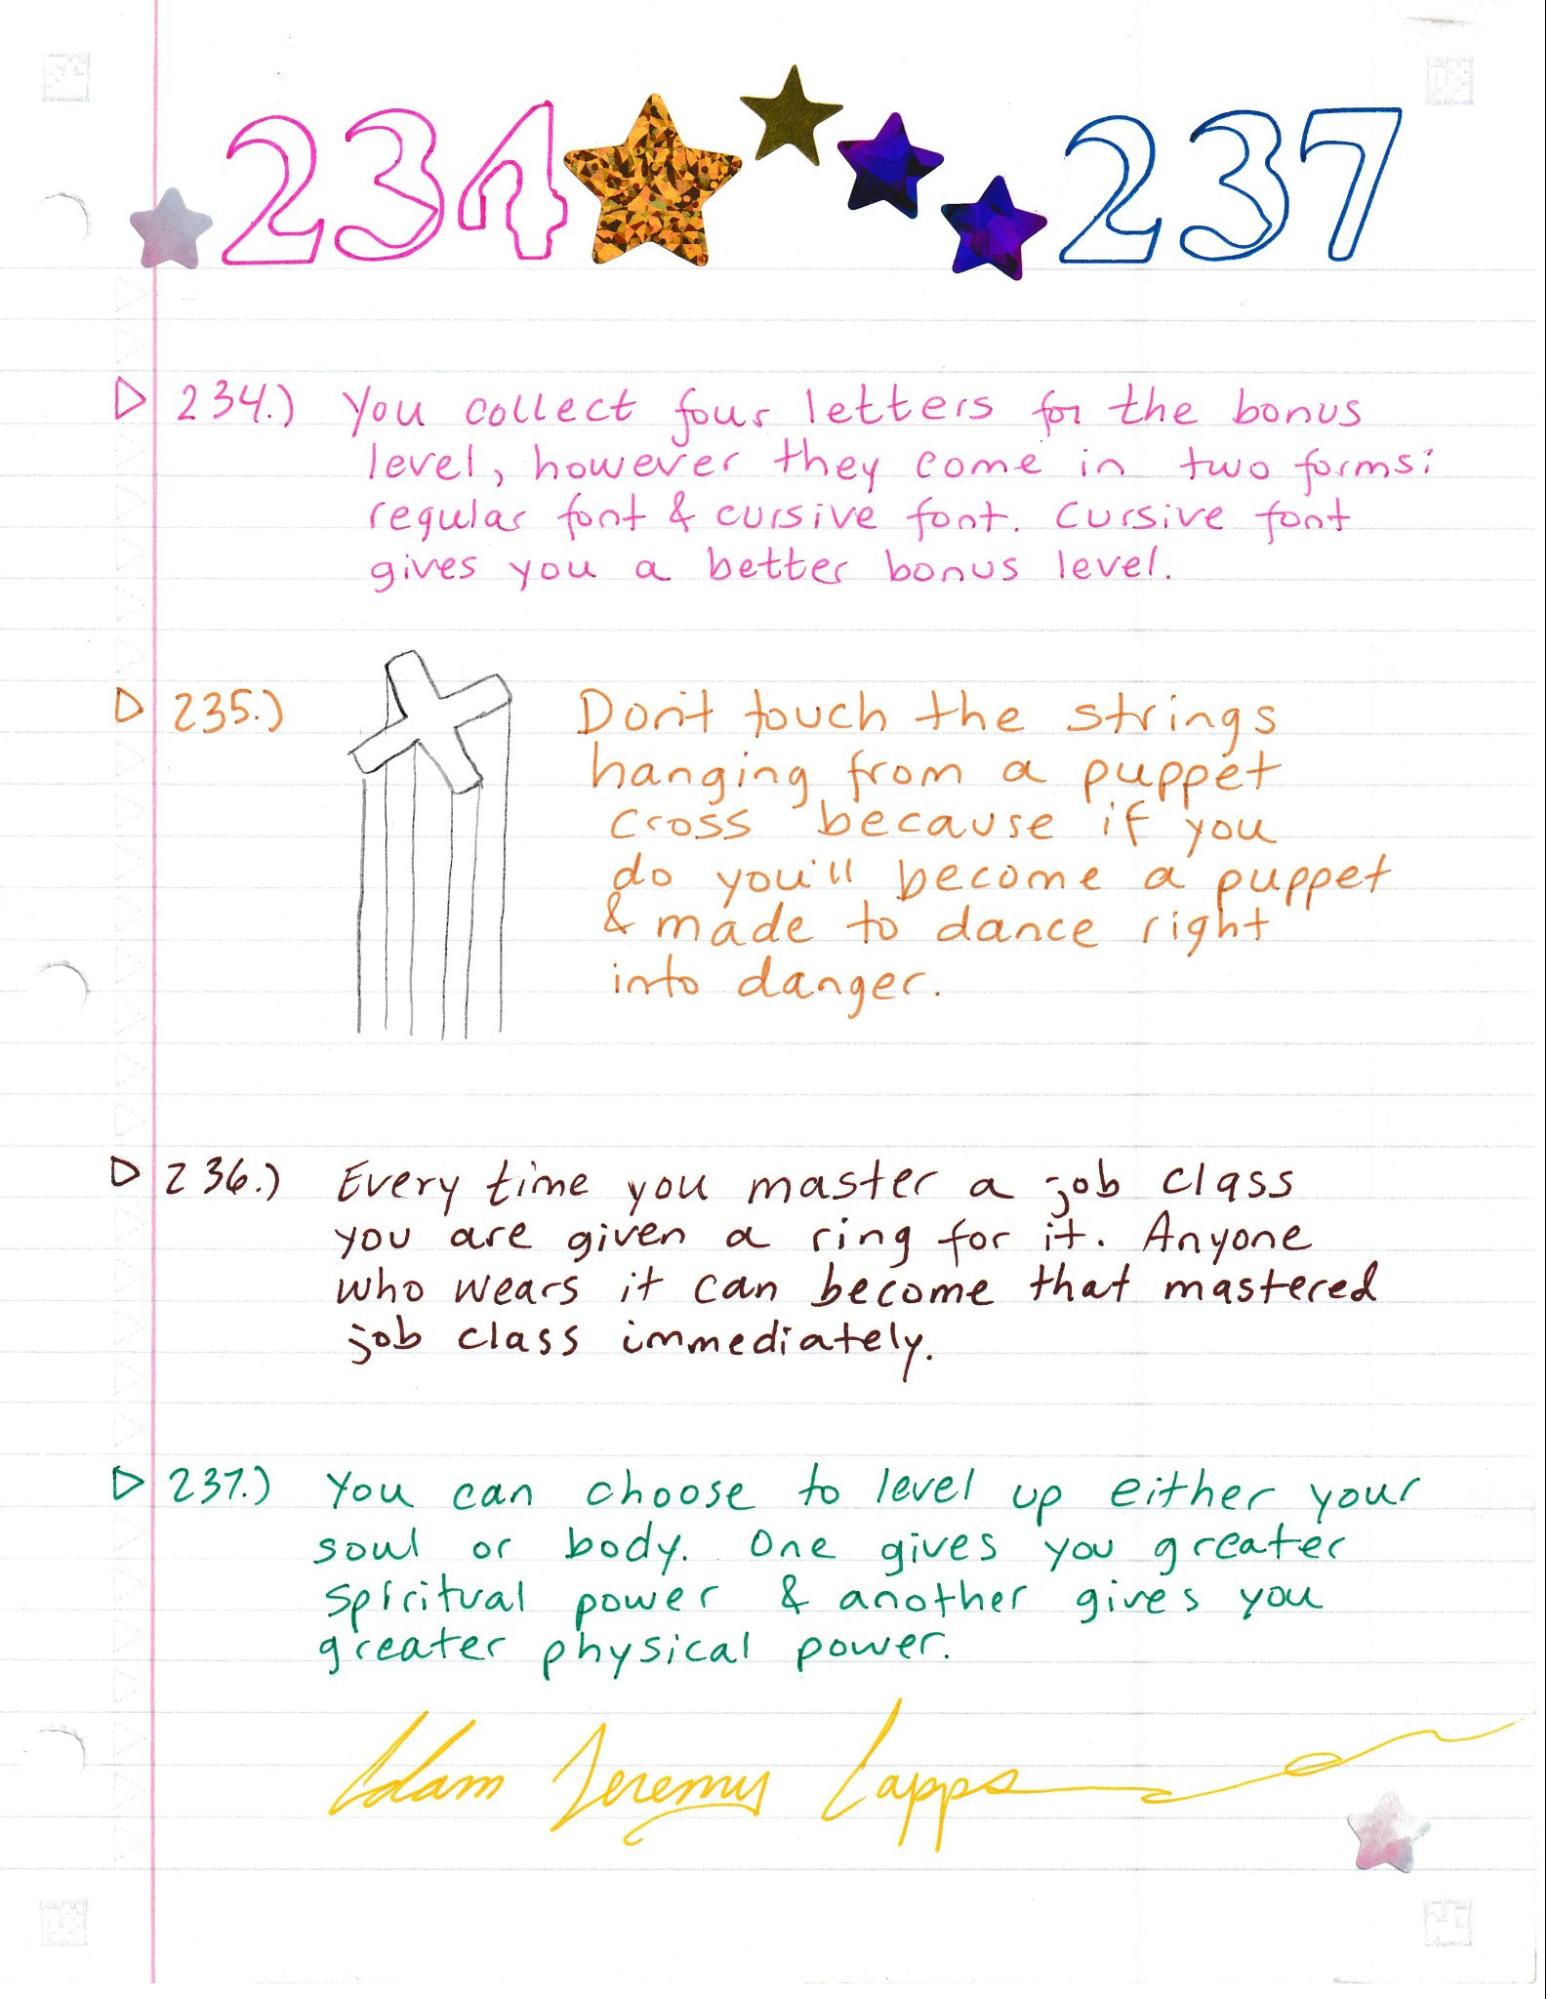 234 237
234.) You collect four letters for the bonus
level, however they come in two forms:
regular font & cursive font. Cursive font
gives you a better bonus level.
235.) Don't touch the strings
hanging from a puppet
cross because if you
do you'll become a puppet
& made to dance right
into danger.
236.) Every time you master a job class
you are given a ring for it. Anyone
who wears it can become that mastered
job class immediately.
237.) You can choose to level up either your
soul or body. One gives you greater
spiritual power & another gives you
greater physical power.
Adam Jeremy Capps